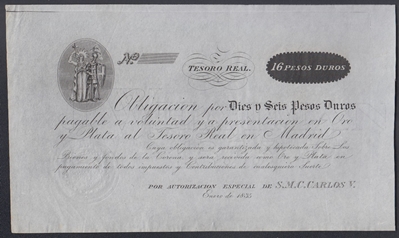 Nº
TESORO REAL.
16 PESOS DUROS
Obligacion por Dies y Seis Pesos Duros
pagable a voluntad y a presentacion en Oro
y Plata al Tesoro Real en Madrid
Cuya obligacion es garantizada y hipotecada Sobre Los
Bienes y fondos de la Corona y sera recivida como Oro y Plata en
pagamento de todos impuestos y Contribuciones de cualesquiera Suerte
POR AUTORIZACION ESPECIAL DE S.M.C. CARLOS V.
Enero de 1835